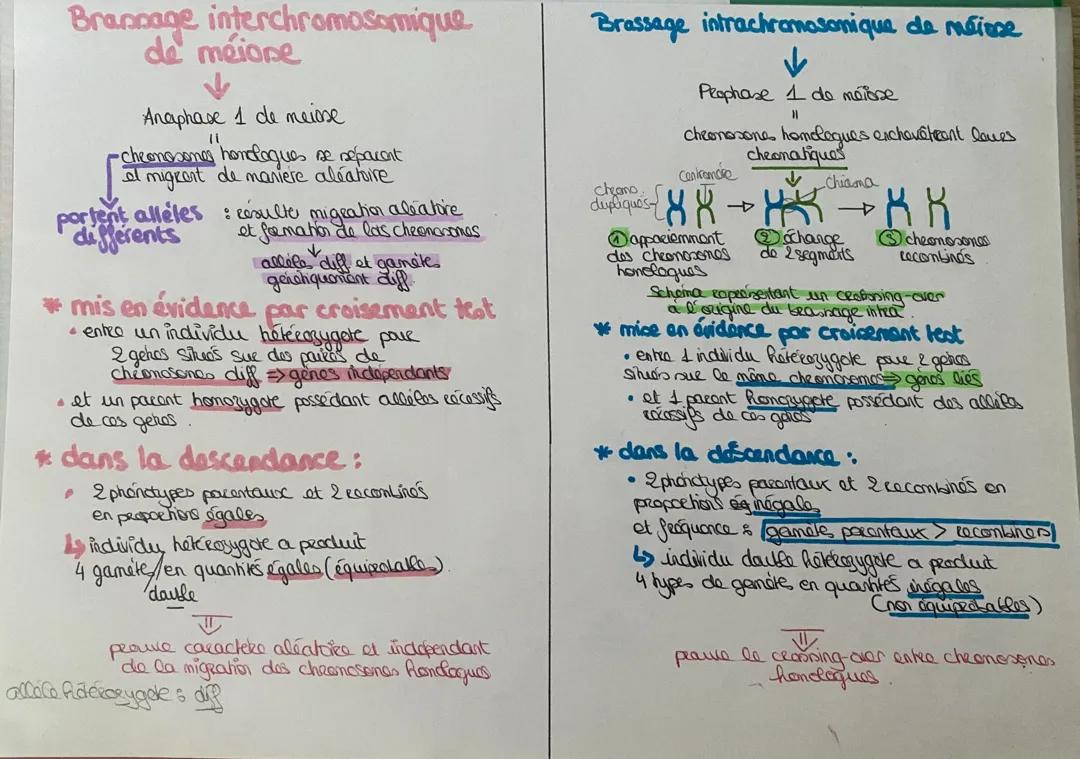 Brassage interchromosomique
de méiose
Anaphase 1 de meiose
chromosomes homologues se séparent
et migrent de manière aléatoire
portent allèles
différents
: résulte migration aléatoire
et formation de lots chromosomes
allèles diff et gamète
génétiquement diff.
* mis en évidence par croisement test
• entre un individu hétérozygote pour
2 gènes situés sur des paires de
chromosomes diff => gènes indépendants
• et un parent homozygote possédant allèles récessifs
de ces gènes.
* dans la descendance :
• 2 phénotypes parentaux et 2 recombinés
en proportions égales
↳ individu hétérozygote a produit
4 gamète/en quantités égales (équiprobables)
double
preuve caractère aléatoire et indépendant
de la migration des chromosomes homologues
allèle hétérozygote : diff
Brassage intrachromosomique de méiose
Prophase 1 de méiose
=
chromosomes homologues enchevêtrent leurs
chromatiques
chromo.
dupliqués
Centromère
Chiasma
① appariemment
des chromosomes
homologues
② échange
de 2 segments
③ chromosomes
recombinés
Schéma représentant un crossing-over
à l'origine du brassage intra.
* mise en évidence par croisement test
• entre 1 individu hétérozygote pour 2 gènes
situés sur le même chromosomes => gènes liés
• et 1 parent homozygote possédant des allèles
récessifs de ces gènes
* dans la déscendance :
• 2 phénotypes parentaux et 2 recombinés en
proportions inégales
et fréquence : gamète parentaux > recombinés
↳ individu double hétérozygote a produit
4 types de gamète en quantités inégales
(non équiprobables)
preuve le crossing-over entre chromosomes
homologues.